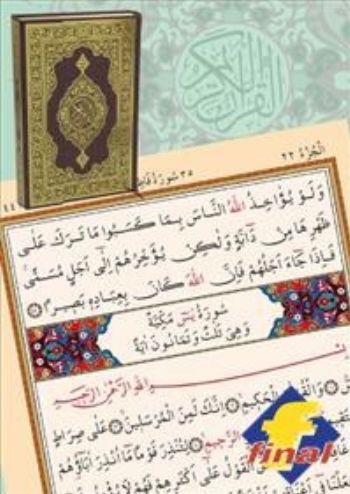 القرآن الكريم
الجزء ٢٢
٣٥ سورة فاطر
٤٤
وَلَوْ يُؤَاخِذُ اللّٰهُ النَّاسَ بِمَا كَسَبُوا مَا تَرَكَ عَلٰى
ظَهْرِهَا مِنْ دَابَّةٍ وَلٰكِنْ يُؤَخِّرُهُمْ اِلٰٓى اَجَلٍ مُسَمًّى
فَاِذَا جَٓاءَ اَجَلُهُمْ فَاِنَّ اللّٰهَ كَانَ بِعِبَادِهٖ بَصٖيرًا
سُورَةُ يٰسٓ مَكِّيَّةٌ
وَهِىَ ثَلٰثٌ وَثَمَانُونَ اٰيَةً
بِسْمِ اللّٰهِ الرَّحْمٰنِ الرَّحٖيمِ
وَالْقُرْاٰنِ الْحَكٖيمِ اِنَّكَ لَمِنَ الْمُرْسَلٖينَ عَلٰى صِرَاطٍ
الرَّحٖيمِ لِتُنْذِرَ قَوْمًا مَٓا اُنْذِرَ اٰبَٓاؤُهُمْ
الْقَوْلُ عَلٰٓى اَكْثَرِهِمْ فَهُمْ لَا
final